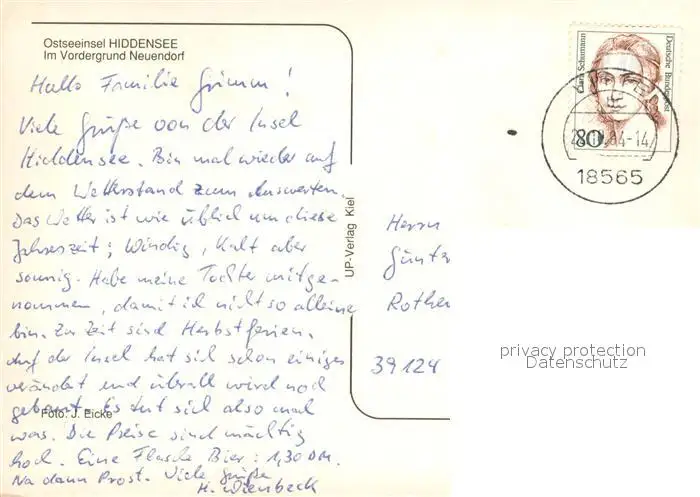 Ostseeinsel HIDDENSEE
Im Vordergrund Neuendorf
Hallo Familie Grimm!
Viele Grüße von der Insel
Hiddensee. Bin mal wieder auf
dem Wetterstand zum Auswerten.
Das Wetter ist wie üblich um diese
Jahreszeit; Windig, kalt aber
sonnig. Habe meine Tochter mitge-
nommen, damit ich nicht so alleine
bin. Zur Zeit sind Herbstferien.
Auf der Insel hat sich schon einiges
verändert und überall wird noch
gebaut. Es tut sich also mal
was. Die Preise sind mächtig
hoch. Eine Flasche Bier: 1,30 DM.
Na dann Prost. Viele Grüße
H. Wienbeck
Foto: J. Eicke
UP-Verlag Kiel
Clara Schumann
Deutsche Bundespost
80
94-14
18565
Herrn
Günt
Rother
39124
privacy protection
Datenschutz